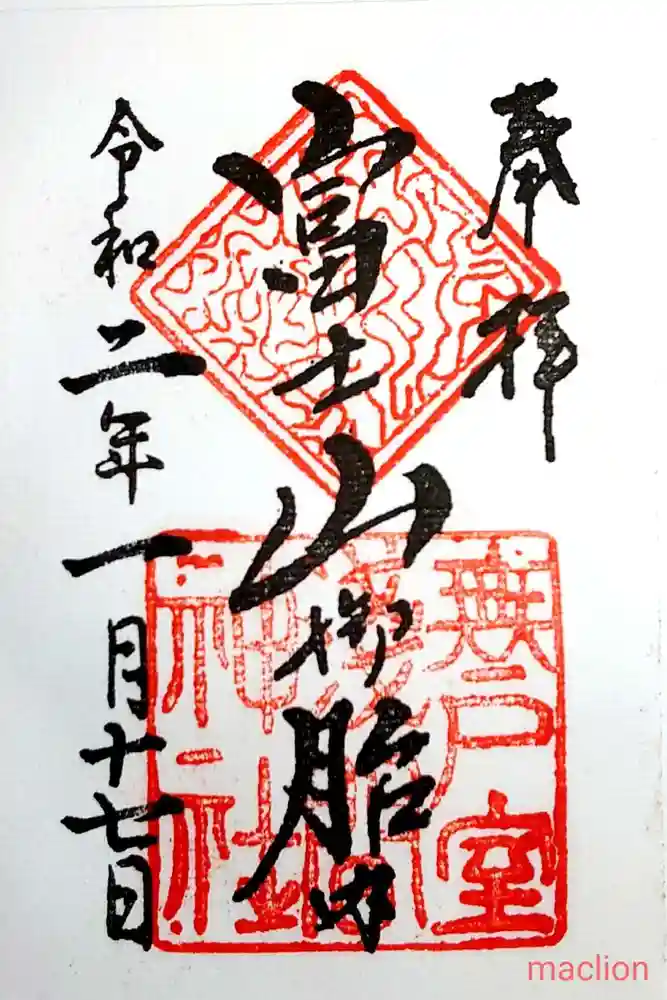 奉拝
富士山御胎内
令和二年一月十七日
無戸室
淺間
神社
maclion